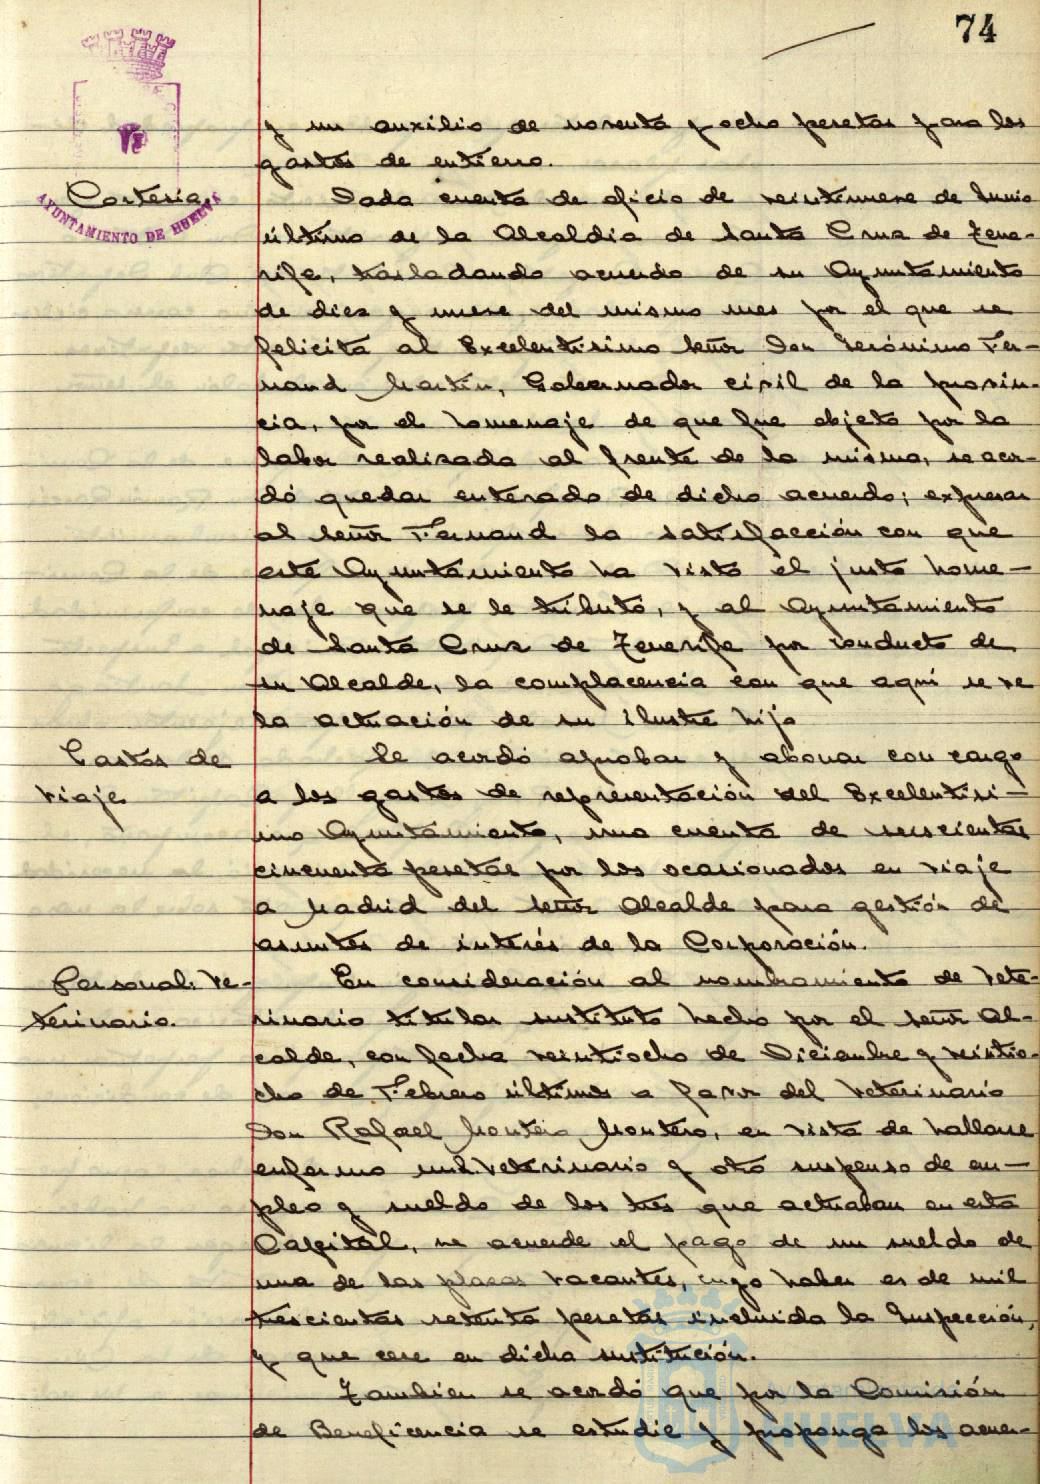 74
y un auxilio de noventa y ocho pesetas para los
gastos de entierro.
Cortesía.
AYUNTAMIENTO DE HUELVA
Dada cuenta de oficio de veintinueve de Junio
último de la Alcaldía de Santa Cruz de Tene-
rife, trasladando acuerdo de su Ayuntamiento
de diez y nueve del mismo mes por el que se
felicita al Excelentísimo Señor Don Jerónimo Fer-
nand Martín, Gobernador civil de la provin-
cia, por el homenaje de que fue objeto por la
labor realizada al frente de la misma, se acor-
dó quedar enterado de dicho acuerdo; expresar
al Señor Fernand la satisfacción con que
este Ayuntamiento ha visto el justo home-
naje que se le tributó, y al Ayuntamiento
de Santa Cruz de Tenerife por conducto de
su Alcalde, la complacencia con que aquí se ve
la actuación de su ilustre hijo
Gastos de
viaje
Se acordó aprobar y abonar con cargo
a los gastos de representación del Excelentísi-
mo Ayuntamiento, una cuenta de seiscientas
cincuenta pesetas por los ocasionados en viaje
a Madrid del Señor Alcalde para gestión de
asuntos de interés de la Corporación.
Personal. Ve-
terinario.
En consideración al nombramiento de Vete-
rinario titular sustituto hecho por el Señor Al-
calde, con fecha veintiocho de Diciembre y veintio-
cho de Febrero últimos a favor del Veterinario
Don Rafael Montero, en vista de hallarse
enfermo un Veterinario y otro suspenso de em-
pleo y sueldo de los tres que actuaban en esta
Capital, se acuerde el pago de un sueldo de
una de las plazas vacantes, cuyo haber es de mil
trescientas setenta pesetas incluida la Inspección,
y que cese en dicha sustitución.
Tambien se acordó que por la Comisión
de Beneficencia se estudie y proponga los acuer-
HUELVA